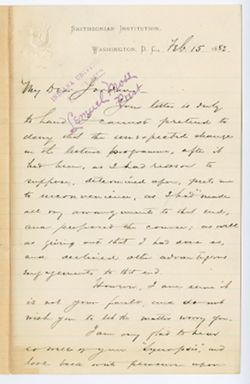 SMITHSONIAN INSTITUTION,
WASHINGTON, D. C., Feb. 15 1882
My Dear Jordan,
Your letter is duly
to hand. I cannot pretend to
deny that the unexpected change
in the lecture programme, after it
had been, as I had reason to
suppose, determined upon, puts me
to inconvenience, as I had made
all my arrangements to this end,
and prepared the course; as well
as giving out that I had done so,
and declined other advantageous
engagements to this end.
However, I am sure it
is not your fault, and do not
wish you to let the matter worry you.
I am very glad to hear
so well of your "Synopsis", and
look back with pleasure upon